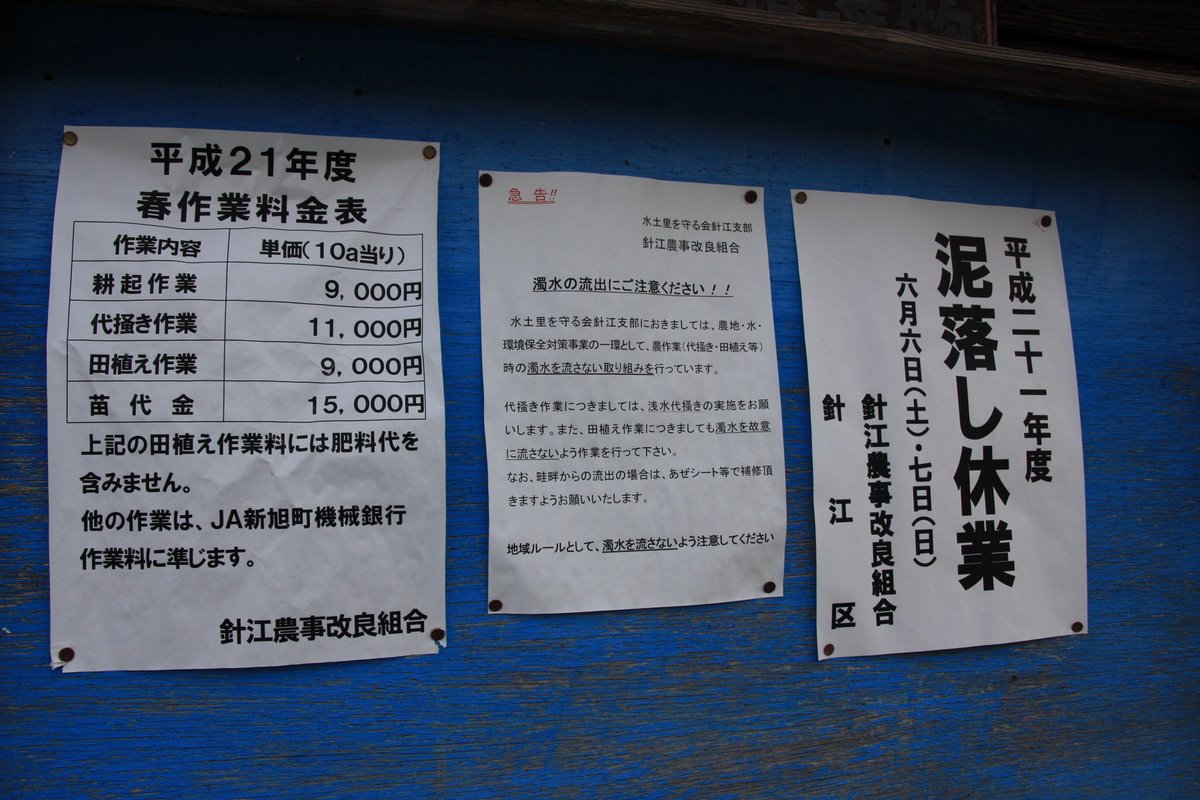 平成21年度
春作業料金表
作業内容 単価(10a当り)
耕起作業 9,000円
代掻き作業 11,000円
田植え作業 9,000円
苗代金 15,000円
上記の田植え作業料には肥料代を
含みません。
他の作業は、JA新旭町機械銀行
作業料に準じます。
針江農事改良組合
急 告!!
水土里を守る会針江支部
針江農事改良組合
濁水の流出にご注意ください!!
水土里を守る会針江支部におきましては、農地・水・
環境保全対策事業の一環として、農作業(代掻き・田植え等)
時の濁水を流さない取り組みを行っています。
代掻き作業につきましては、浅水代掻きの実施をお願
いします。また、田植え作業につきましても濁水を故意
に流さないよう作業を行って下さい。
なお、畦畔からの流出の場合は、あぜシート等で補修頂
きますようお願いいたします。
地域ルールとして、濁水を流さないよう注意してください
平成二十一年度
泥落し休業
六月六日(土)・七日(日)
針江農事改良組合
針江区